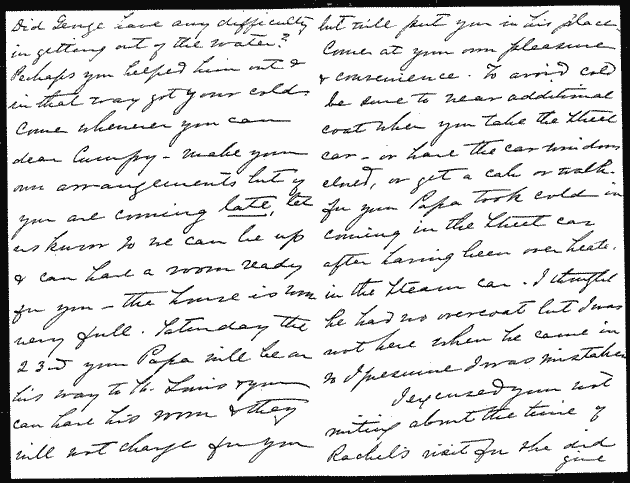 Did George have any difficulty
in getting out of the water?
Perhaps you helped him out &
in that way got your colds
Come whenever you can
dear Cumpy - make your
own arrangements but if
you are coming late, let
us know so we can be up
& can have a room ready
for you - the house is now
very full. Saturday the
23rd your Papa will be on
his way to St. Louis & you
can have his room & they
will not charge for you
but will put you in his place.
Come at your own pleasure
& convenience. To avoid cold
be sure to wear additional
coat when you take the street
car - or have the car windows
closed, or get a cab or walk.
for your Papa took cold in
coming in the street car
after having been over heated
in the steam car. I thought
he had no overcoat but I was
not here when he came in
so I presume I was mistaken
I excused your not
writing about the time of
Rachel's visit for she did
give